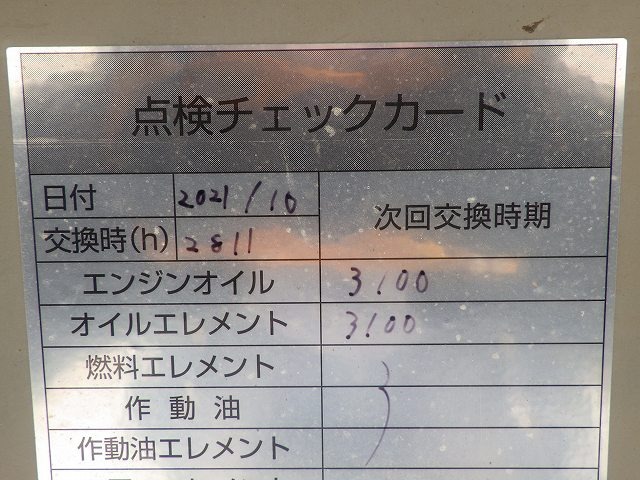 点検チェックカード
日付 2021/10 次回交換時期
交換時(h) 2811
エンジンオイル 3100
オイルエレメント 3100
燃料エレメント
作動油
作動油エレメント